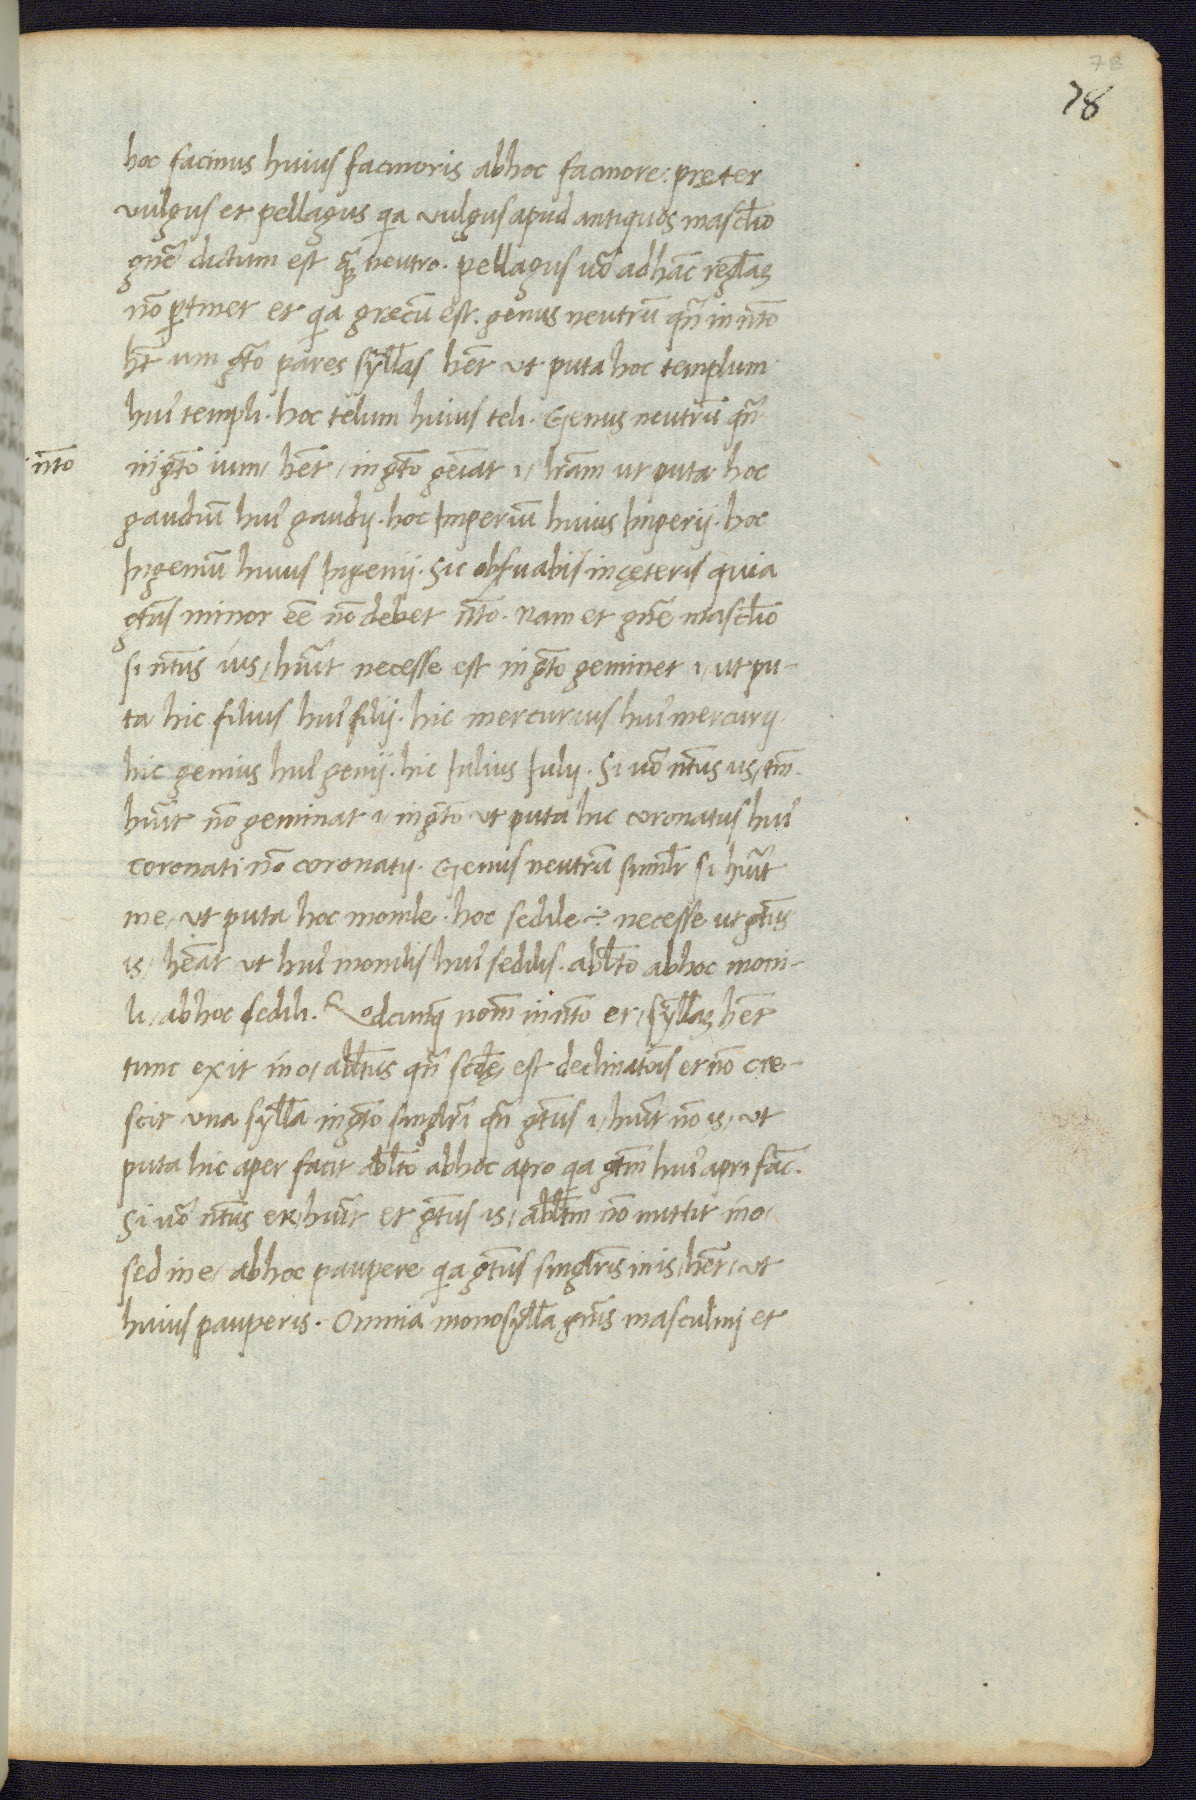 78
78
hoc facinus huius facinoris ab hoc facinore: pręter
vulgus et pellagus qa vulgus apud antiquos mascl̄io
gn̄e dictum est qʒ neutro. pellagus uō ad hāc regl̄aʒ
nō ptinet et qa grecū est. genus neutrū qn̄ in nt̄o
ht̄ um gt̄o pares syll̄as hēt ut puta hoc templum
huiꝰ templi. hoc telum huius teli. Genus neutrū qn̄
nt̄o
in gt̄o ium, hēt, in gt̄o gēiat i, lr̄am ut puta hoc
gaudiū huiꝰ gaudij. hoc Imperiū huius Imperij. hoc
Ingeniū huius Ingenij. Sic obsuabis in cęteris quia
gt̄us minor eē nō debet nt̄o. Nam et gn̄e mascl̄io
si nt̄us ius, hūit necesse est in gt̄o geminet i, ut pu-
ta hic filius huiꝰ filij. hic mercurius huiꝰ mercurij.
hic genius huiꝰ genij. hic Iulius Iulij. Si uō nt̄us us, tm̄
hūit nō geminat i, in gt̄o ut puta hic coronatus huiꝰ
coronati nō coronatij. Genus neutrū simil̄r si hūit
ne, ut puta hoc monile. hoc sedile ÷ necesse ut gt̄us
is, hēat ut huiꝰ monilis huiꝰ sedilis. abl̄to ab hoc moni-
li, ab hoc sedili. Qodcunqʒ nom̄ in nt̄o er, syll̄aʒ hēt
tunc exit in o, abl̄tus qn̄ scd̄ę est declinatōis et nō cre-
scit una syll̄a in gt̄o singlr̄i qn̄ gt̄us i, hūit nō is, ut
puta hic aper facit abl̄to ab hoc apro qa gt̄m huiꝰ apri fāc.
Si uō nt̄us er, hūit et gt̄us is, abl̄tm nō mittit in o,
sed in e, ab hoc paupere qa gt̄us singlr̄is in is, hēt, ut
huius pauperis. Omnia monosyll̄a gn̄is masculinj et